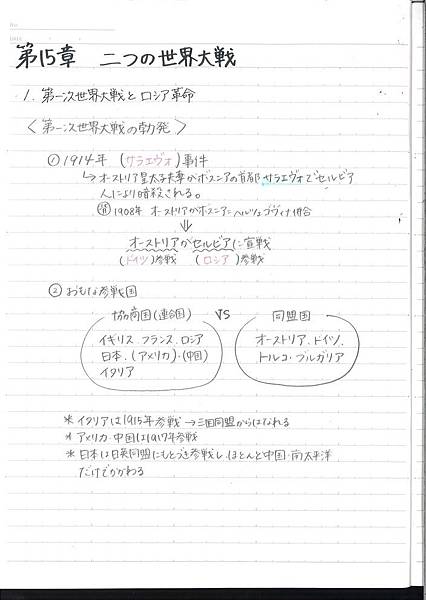 No.
DATE
第15章 二つの世界大戦
1. 第一次世界大戦とロシア革命
〈第一次世界大戦の勃発〉
① 1914年 (サラエヴォ)事件
↳ オーストリア皇太子夫妻がボスニアの首都サラエヴォでセルビア
人により暗殺される。
1908年 オーストリアがボスニア・ヘルツェゴヴィナ併合
⇓
オーストリアがセルビアに宣戦
(ドイツ)参戦 (ロシア)参戦
② おもな参戦国
協商国(連合国) VS 同盟国
イギリス、フランス、ロシア
日本、(アメリカ)・(中国)
イタリア
オーストリア、ドイツ、
トルコ・ブルガリア
* イタリアは1915年参戦 → 三国同盟からはなれる
* アメリカ・中国は1917年参戦
* 日本は日英同盟にもとづき参戦し、ほとんど中国・南太平洋
だけでかかわる